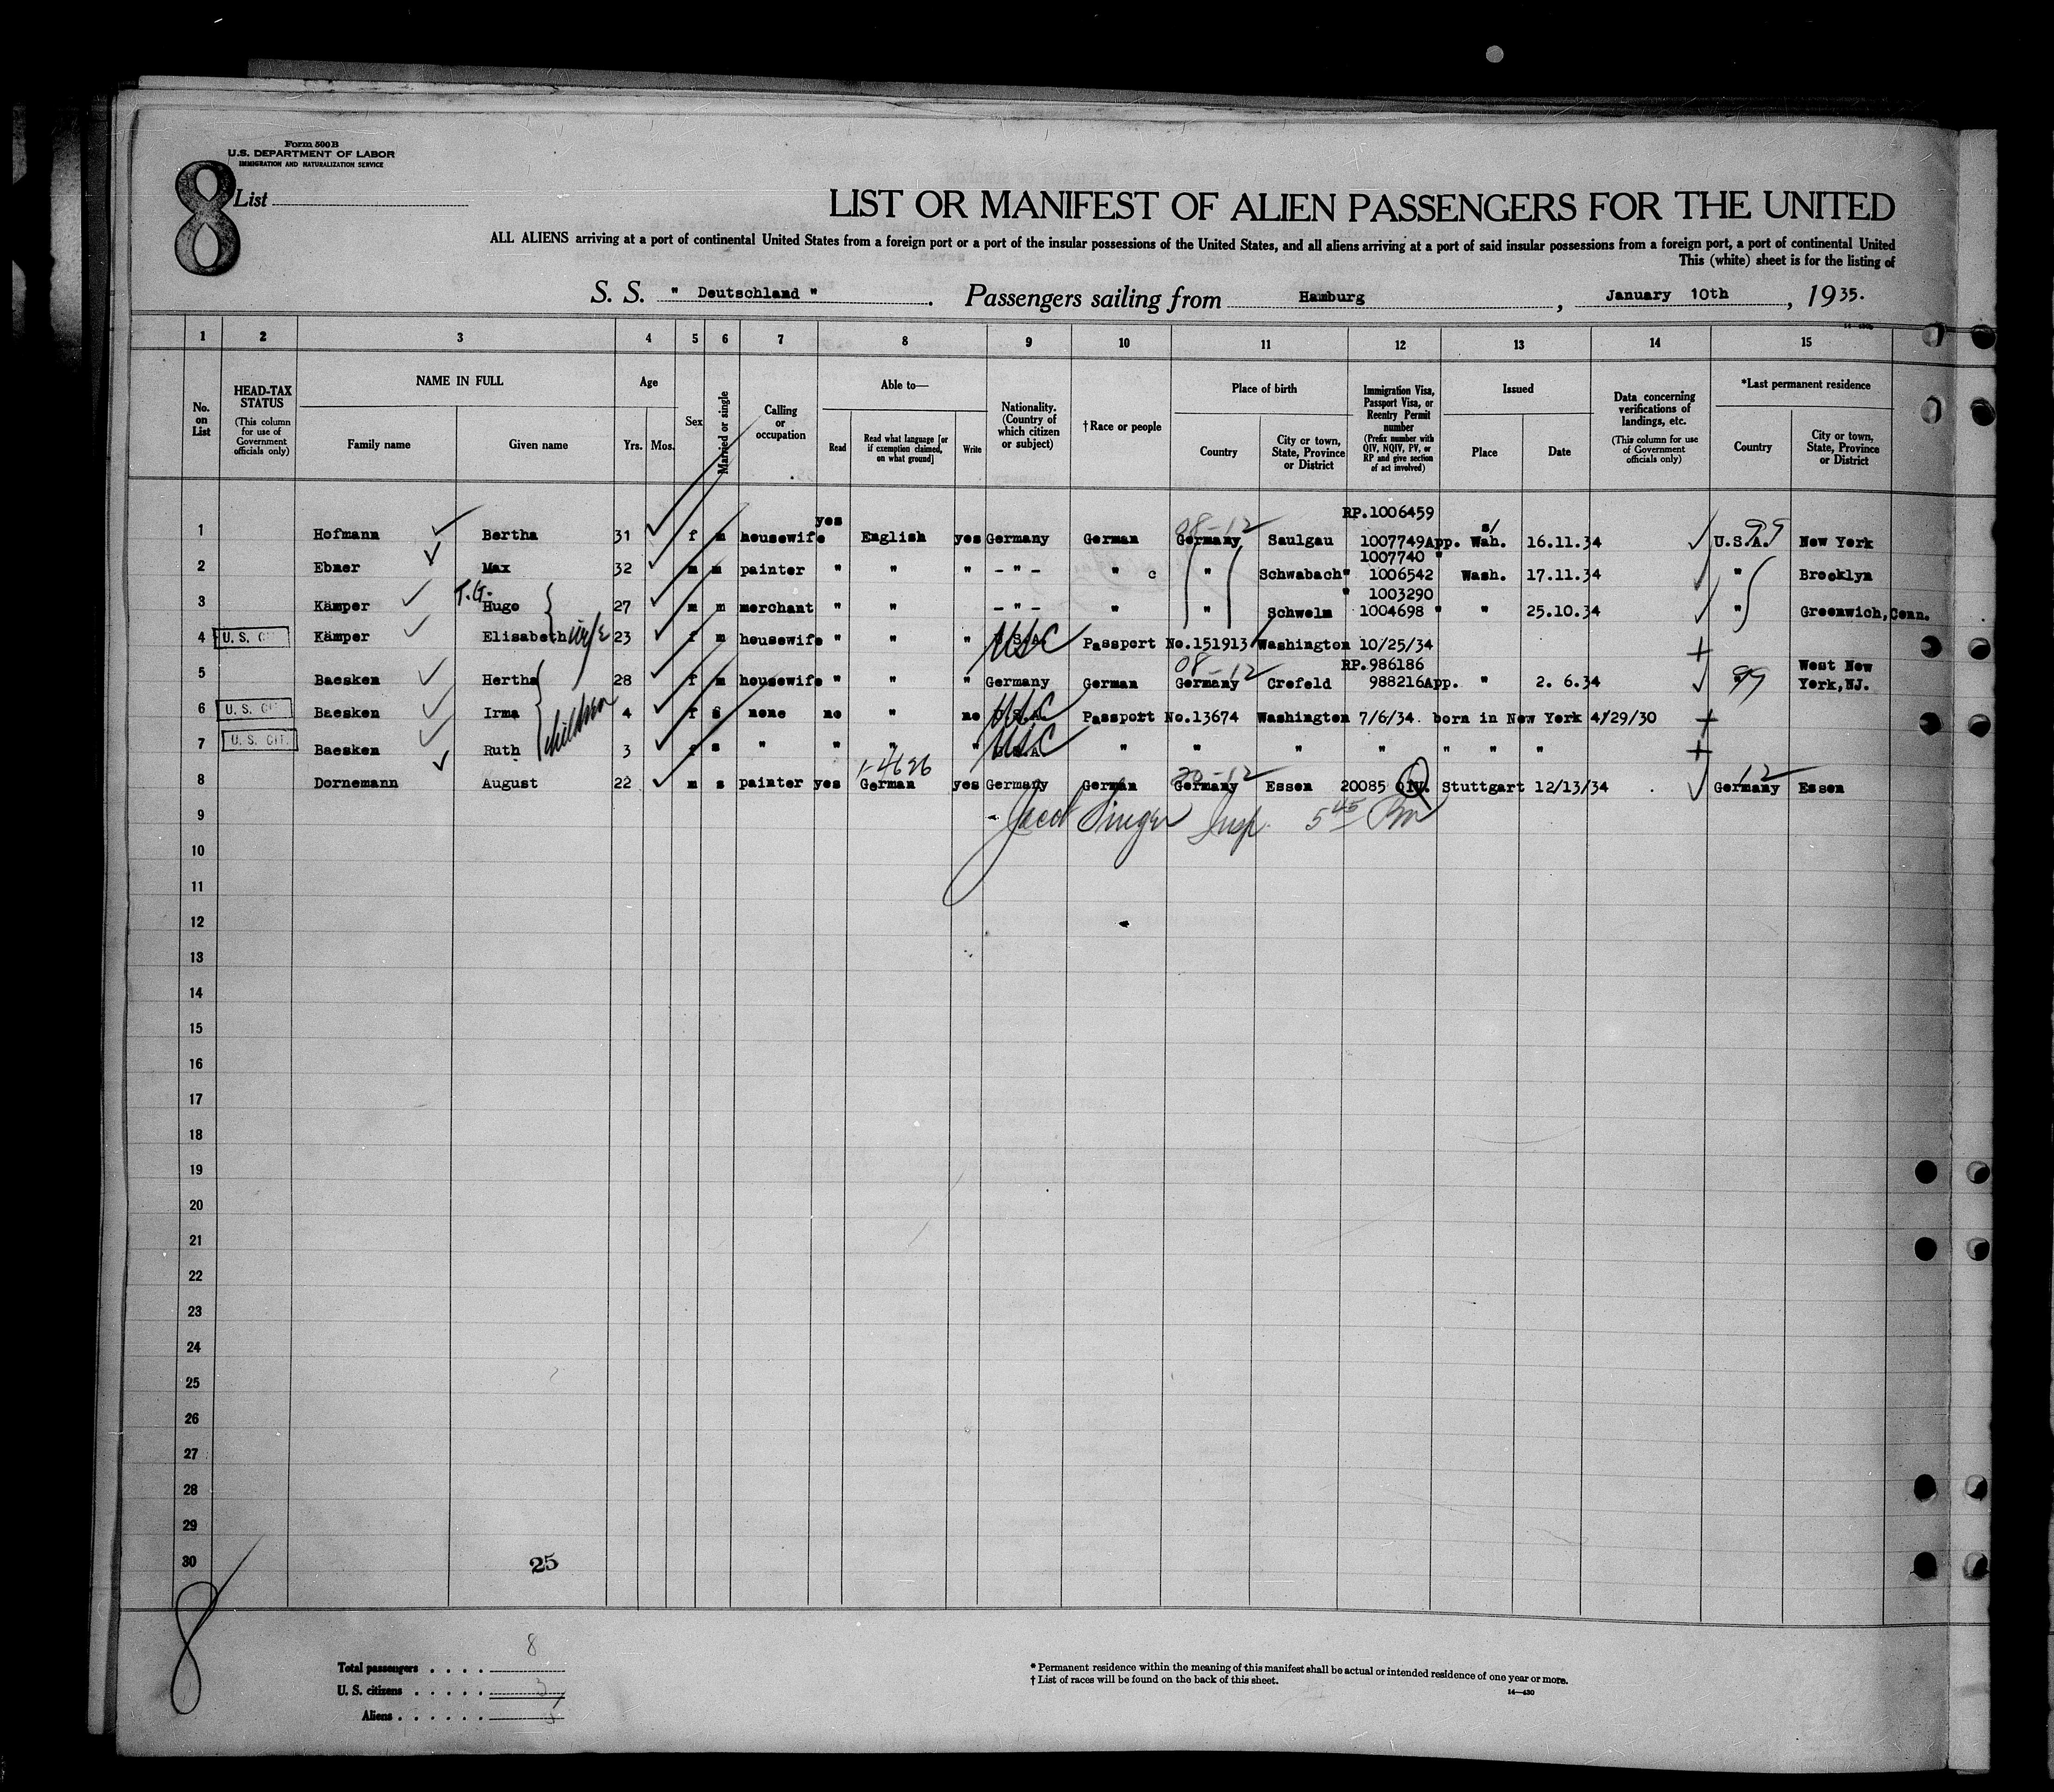 Form 500 B
U.S. DEPARTMENT OF LABOR
IMMIGRATION AND NATURALIZATION SERVICE
8
List
LIST OR MANIFEST OF ALIEN PASSENGERS FOR THE UNITED
ALL ALIENS arriving at a port of continental United States from a foreign port or a port of the insular possessions of the United States, and all aliens arriving at a port of said insular possessions from a foreign port, a port of continental United
This (white) sheet is for the listing of
S. S. " Deutschland ". Passengers sailing from Hamburg, January 10th, 1935.
1 2 3 4 5 6 7 8 9 10 11 12 13 14 15
No. on List
HEAD-TAX STATUS
(This column for use of Government officials only)
NAME IN FULL
Family name Given name
Age
Yrs. Mos.
Sex
Married or single
Calling or occupation
Able to—
Read
Read what language [or if exemption claimed, on what ground]
Write
Nationality. (Country of which citizen or subject)
†Race or people
Place of birth
Country
City or town, State, Province or District
Immigration Visa, Passport Visa, or Reentry Permit number
(Prefix number with QIV, NQIV, PV, or RP and give section of act involved)
Issued
Place Date
Data concerning verifications of landings, etc.
(This column for use of Government officials only)
*Last permanent residence
Country
City or town, State, Province or District
yes RP.1006459
08-12 s/ 99
1 Hofmann Bertha 31 f m housewife English yes Germany German Germany Saulgau 1007749App. Wah. 16.11.34 U.S.A. New York
1007740 "
2 Ebner Max 32 m m painter " " " - " - " c " Schwabach" 1006542 Wash. 17.11.34 " Brooklyn
T.G. " 1003290
3 Kämper Hugo 27 m m merchant " " " - " - " " Schwelm 1004698 " " 25.10.34 " Greenwich, Conn.
4 U. S. CIT Kämper Elisabeth wife 23 f m housewife " " " U.S.A. USC Passport No.151913 Washington 10/25/34
08-12 RP.986186 West New
5 Baesken Hertha 28 f m housewife " " " Germany German Germany Crefeld 988216App. " 2. 6.34 " 99 York,NJ.
6 U. S. CIT Baesken Irma children 4 f s none no " no U.S.A. USC Passport No.13674 Washington 7/6/34. born in New York 4/29/30
7 U. S. CIT. Baesken Ruth 3 f s " " " " U.S.A. USC " " " " " " "
1-4626 20-12 12
8 Dornemann August 22 m s painter yes German yes Germany German Germany Essen 20085 QIV. Stuttgart 12/13/34 Germany Essen
9 Jacob Singer Insp. 5 45 Pm
10
11
12
13
14
15
16
17
18
19
20
21
22
23
24
25
26
27
28
29
30 25
8
Total passengers . . . . 8
U. S. citizens . . . . . 3
Aliens . . . . . . 5
* Permanent residence within the meaning of this manifest shall be actual or intended residence of one year or more.
† List of races will be found on the back of this sheet.
14—430